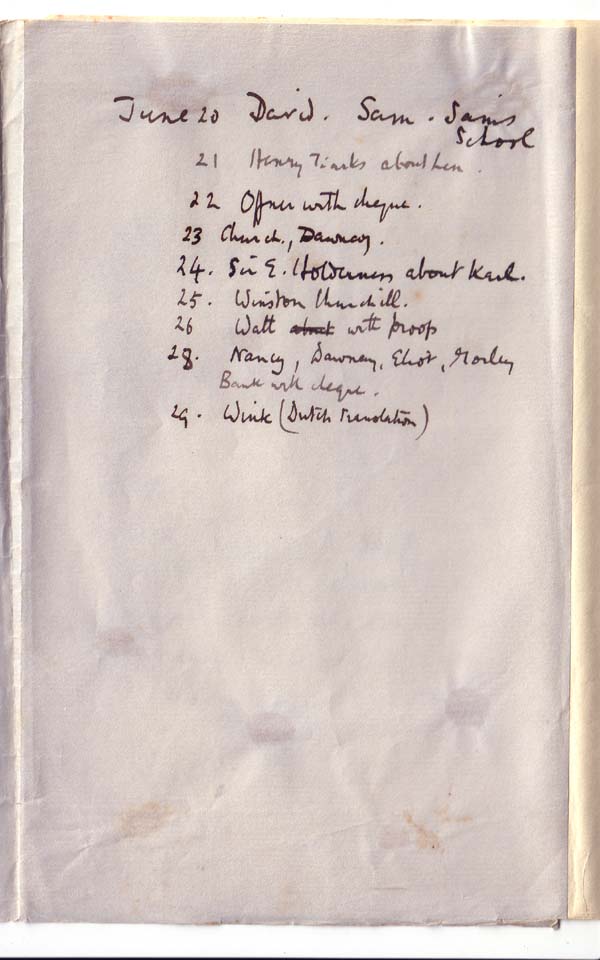 June 20 David. Sam. Sam's
School
21 Henry Tiarks about Len.
22 Offner with cheque.
23 Church, Dawnay.
24. Sir E. Holderness about Karl.
25. Winston Churchill.
26 Watt about with proofs
28. Nancy, Dawnay, Eliot, Morley
Bank with cheque.
29. Wink (Dutch translation)